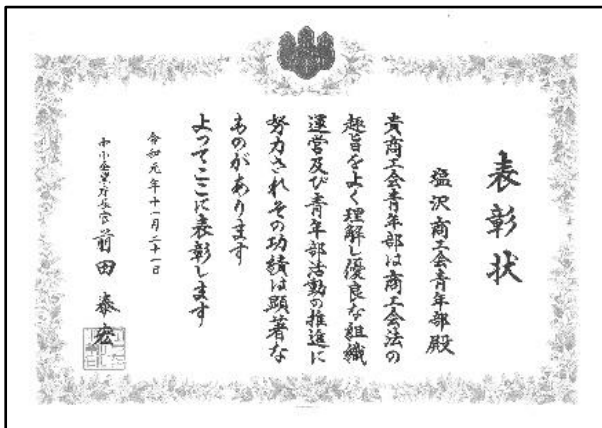 表彰状
塩沢商工会青年部殿
貴商工会青年部は商工会法の
趣旨をよく理解し優良な組織
運営及び青年部活動の推進に
努力されその功績は顕著な
ものがあります
よってここに表彰します
令和元年十一月二十一日
中小企業庁長官 前田泰宏